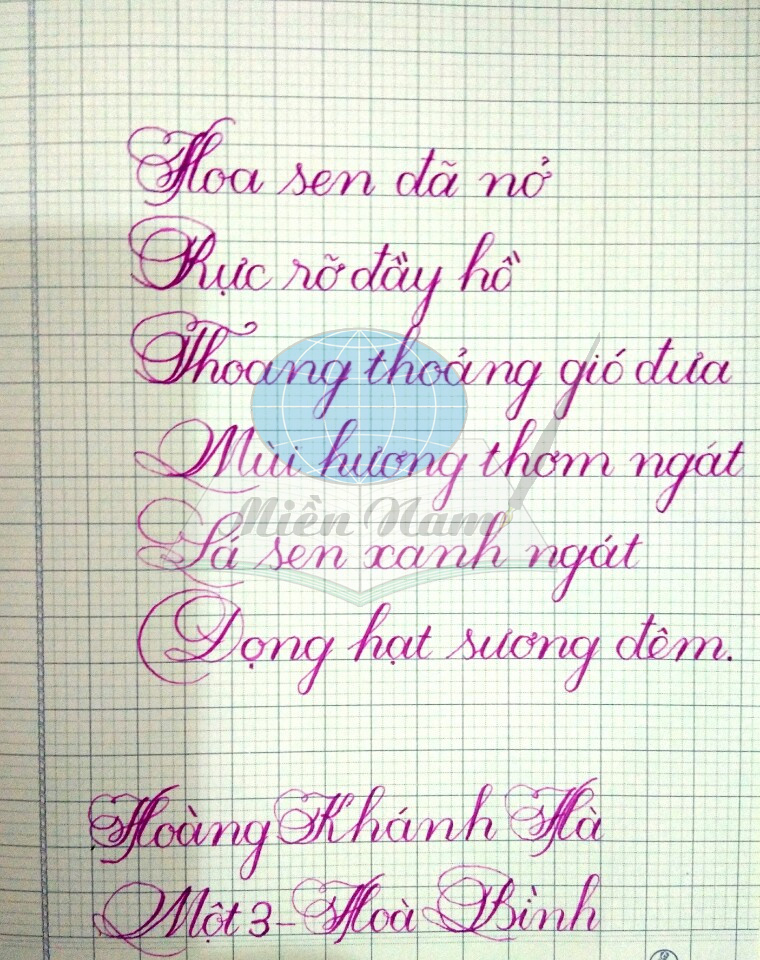 Hoa sen đã nở
Rực rỡ đầy hồ
Thoang thoảng gió đưa
Mùi hương thơm ngát
Miền Nam
Lá sen xanh ngát
Đọng hạt sương đêm.
Hoàng Khánh Hà
Một 3 - Hoà Bình